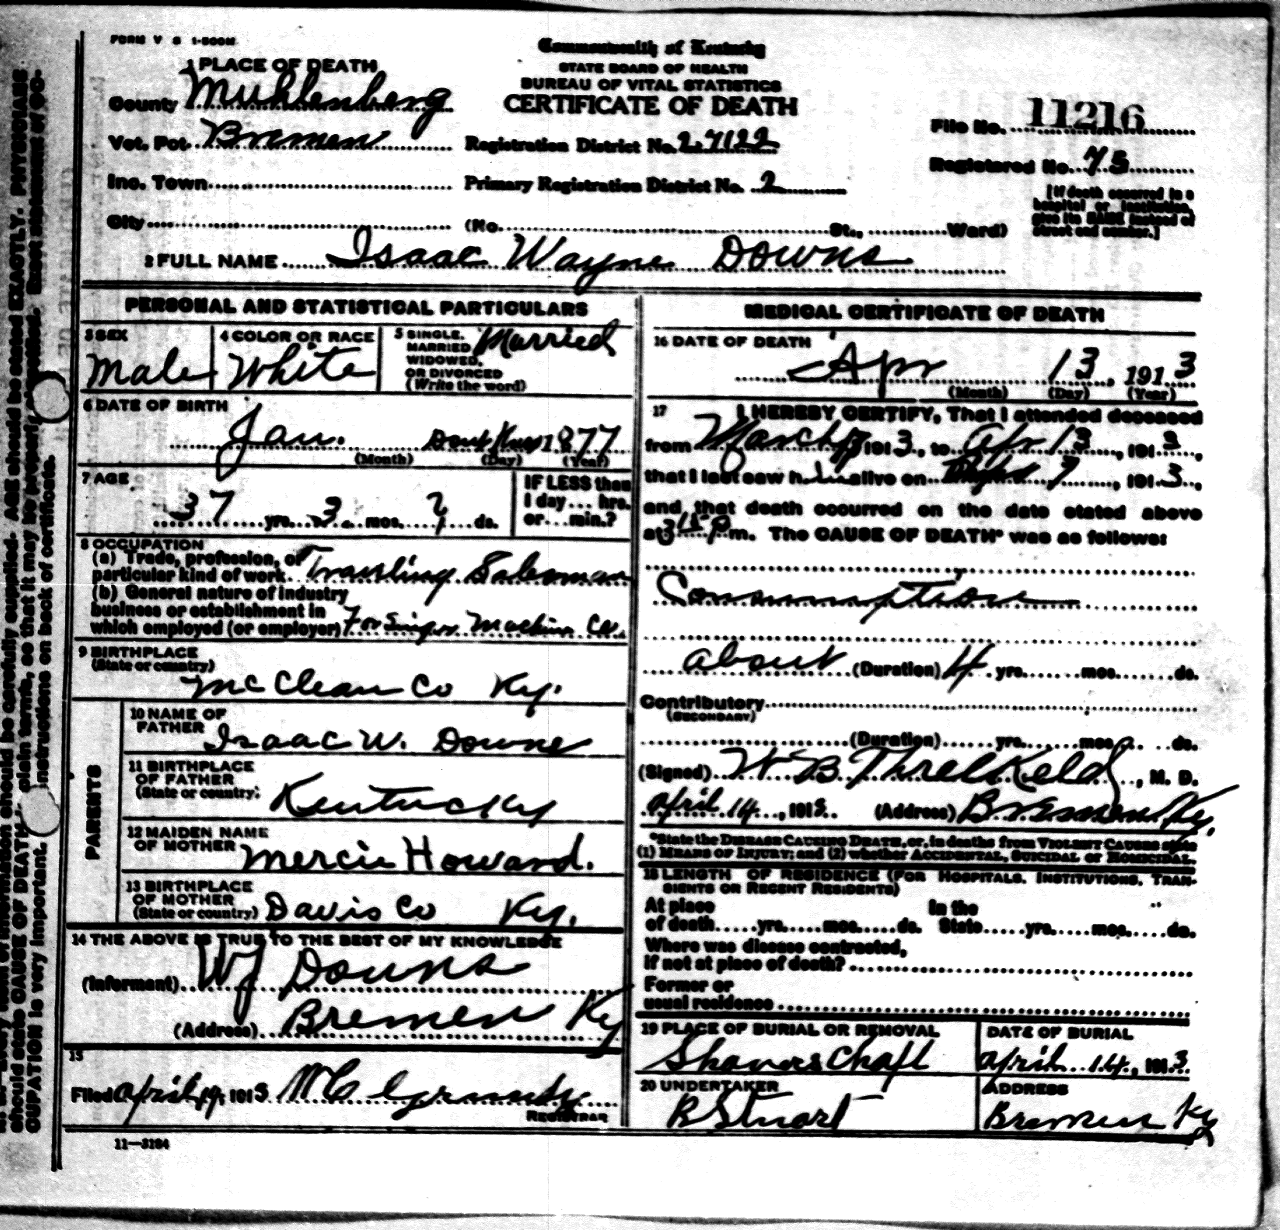 FORM V S 1-500M
Commonwealth of Kentucky
STATE BOARD OF HEALTH
BUREAU OF VITAL STATISTICS
CERTIFICATE OF DEATH
1 PLACE OF DEATH
County Muhlenberg
Vot. Pct Bremen
Inc. Town
City
Registration District No. 27122
Primary Registration District No. 2
(No. St., Ward)
File No. 11216
Registered No. 75
[If death occurred in a
hospital or institution,
give its NAME instead of
Street and number.]
2 FULL NAME Isaac Wayne Downs
PERSONAL AND STATISTICAL PARTICULARS
3 SEX
Male
4 COLOR OR RACE
White
5 SINGLE,
MARRIED
WIDOWED,
OR DIVORCED
(Write the word)
Married
6 DATE OF BIRTH
Jan. Dont Know 1877
(Month) (Day) (Year)
7 AGE
37 yrs. 3 mos. ? ds.
IF LESS than
1 day... hrs.
or... min.?
8 OCCUPATION
(a) Trade, profession, or
particular kind of work Travling Salesman
(b) General nature of industry
business or establishment in
which employed (or employer) For Singer Machine Co.
9 BIRTHPLACE
(State or country)
McClean Co Ky.
PARENTS
10 NAME OF
FATHER Isaac W. Downs
11 BIRTHPLACE
OF FATHER
(State or country)
Kentucky
12 MAIDEN NAME
OF MOTHER Mercie Howard.
13 BIRTHPLACE
OF MOTHER
(State or country) Davis Co Ky.
14 THE ABOVE IS TRUE TO THE BEST OF MY KNOWLEDGE
(Informant) WJ Downs
(Address) Bremen Ky
15
Filed April 1913
REGISTRAR
11-3184
MEDICAL CERTIFICATE OF DEATH
16 DATE OF DEATH
Apr 13, 1913
(Month) (Day) (Year)
17 I HEREBY CERTIFY, That I attended deceased
from March 1913, to Apr 13, 1913,
that I last saw him alive on 7, 1913,
and that death occurred on the date stated above
at 3 15 P m. The CAUSE OF DEATH* was as follows:
Consumption
about (Duration) 4 yrs. mos. ds.
Contributory
(SECONDARY)
(Duration) yrs. mos. ds.
(Signed) W B Threlkeld, M. D.
April 14, 1913. (Address) Bremen Ky.
*State the DISEASE CAUSING DEATH, or, in deaths from VIOLENT CAUSES state
(1) MEANS OF INJURY; and (2) whether ACCIDENTAL, SUICIDAL OR HOMICIDAL.
18 LENGTH OF RESIDENCE (FOR HOSPITALS, INSTITUTIONS, TRAN-
SIENTS OR RECENT RESIDENTS)
At place
of death yrs. mos. ds.
In the
State yrs. mos. ds.
Where was disease contracted,
if not at place of death?
Former or
usual residence
19 PLACE OF BURIAL OR REMOVAL
Shavers Chapl
DATE OF BURIAL
April 14, 1913
20 UNDERTAKER
R Stuart
ADDRESS
Bremen Ky